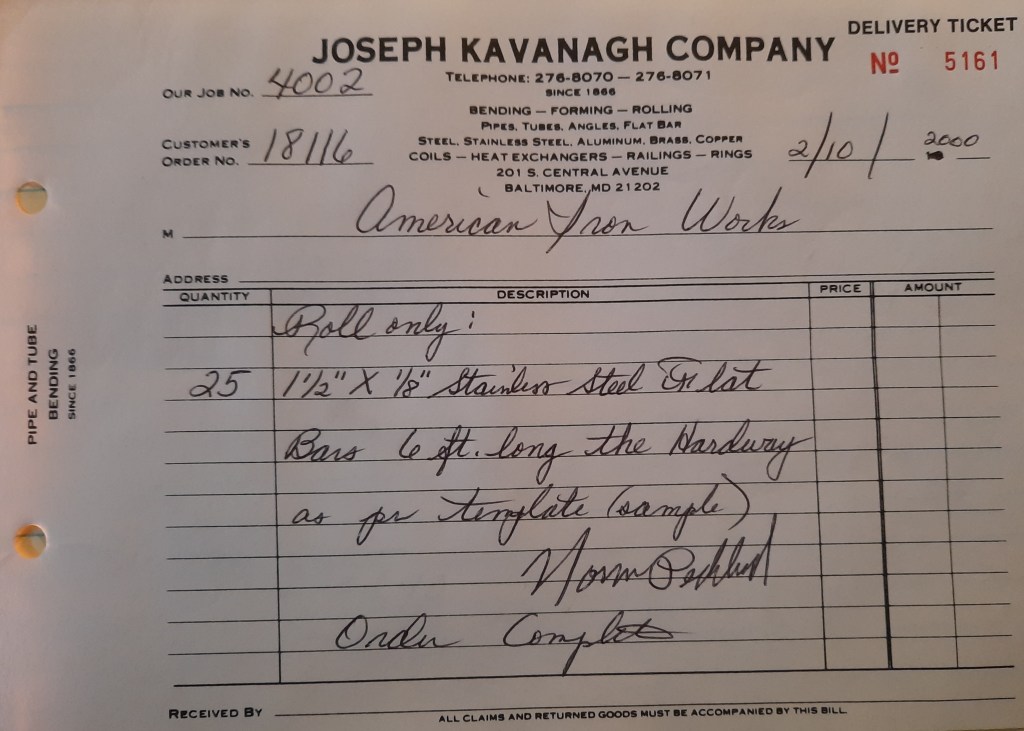 DELIVERY TICKET
JOSEPH KAVANAGH COMPANY
Nº 5161
TELEPHONE: 276-8070 — 276-8071
SINCE 1866
OUR JOB NO. 4002
BENDING — FORMING — ROLLING
PIPES, TUBES, ANGLES, FLAT BAR
STEEL, STAINLESS STEEL, ALUMINUM, BRASS, COPPER
COILS — HEAT EXCHANGERS — RAILINGS — RINGS
CUSTOMER'S
ORDER NO. 18116
2/10/ 2000
201 S. CENTRAL AVENUE
BALTIMORE, MD 21202
M American Iron Works
ADDRESS
QUANTITY DESCRIPTION PRICE AMOUNT
Roll only:
25 1 1/2" X 1/8" Stainless Steel Flat
Bars 6 ft. long the Hardway
as pr template (sample)
Norm
Order Complete
RECEIVED BY
ALL CLAIMS AND RETURNED GOODS MUST BE ACCOMPANIED BY THIS BILL
PIPE AND TUBE
BENDING
SINCE 1866